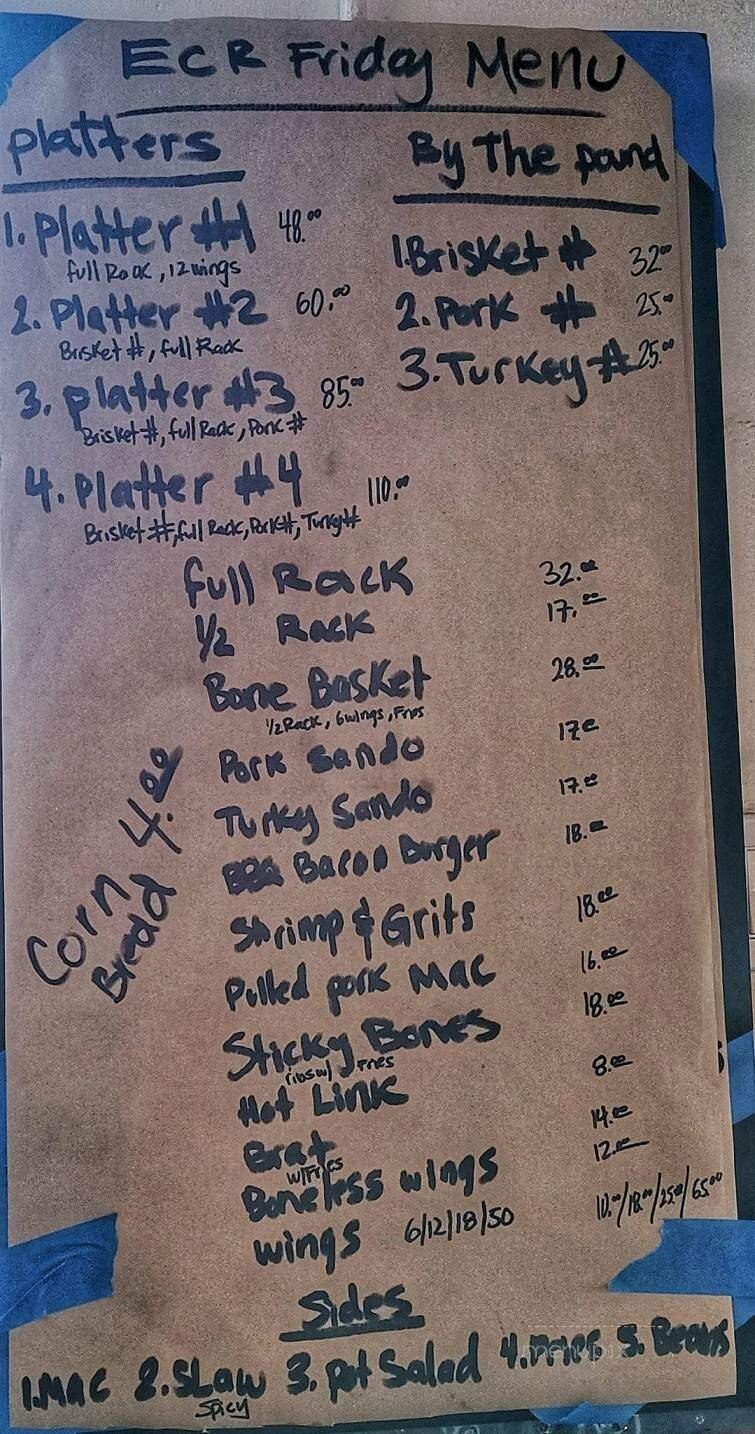 ECR Friday Menu
Platters
1. Platter #1 48.00
full Rack, 12 wings
2. Platter #2 60.00
Brisket #, full Rack
3. Platter #3 85.00
Brisket #, full Rack, Pork #
4. Platter #4 110.00
Brisket #, full Rack, Pork #, Turky #
By The pound
1. Brisket # 32.00
2. Pork # 25.00
3. Turkey # 25.00
full Rack 32.00
1/2 Rack 17.00
Bone Basket 28.00
1/2 Rack, 6 wings, Fries
Pork Sando 17.00
Turky Sando 17.00
Bacon Burger 18.00
Shrimp & Grits 18.00
Pulled pork Mac 16.00
Sticky Bones 18.00
ribs w/ Fries
Hot Link 8.00
Brat 14.00
w/Fries
Boneless wings 12.00
wings 6/12/18/50 10.00/18.00/25.00/65.00
Corn Bread 4.00
Sides
1. Mac 2. SLaw 3. pot Salad 4. Fries 5. Beans
Spicy
menupix